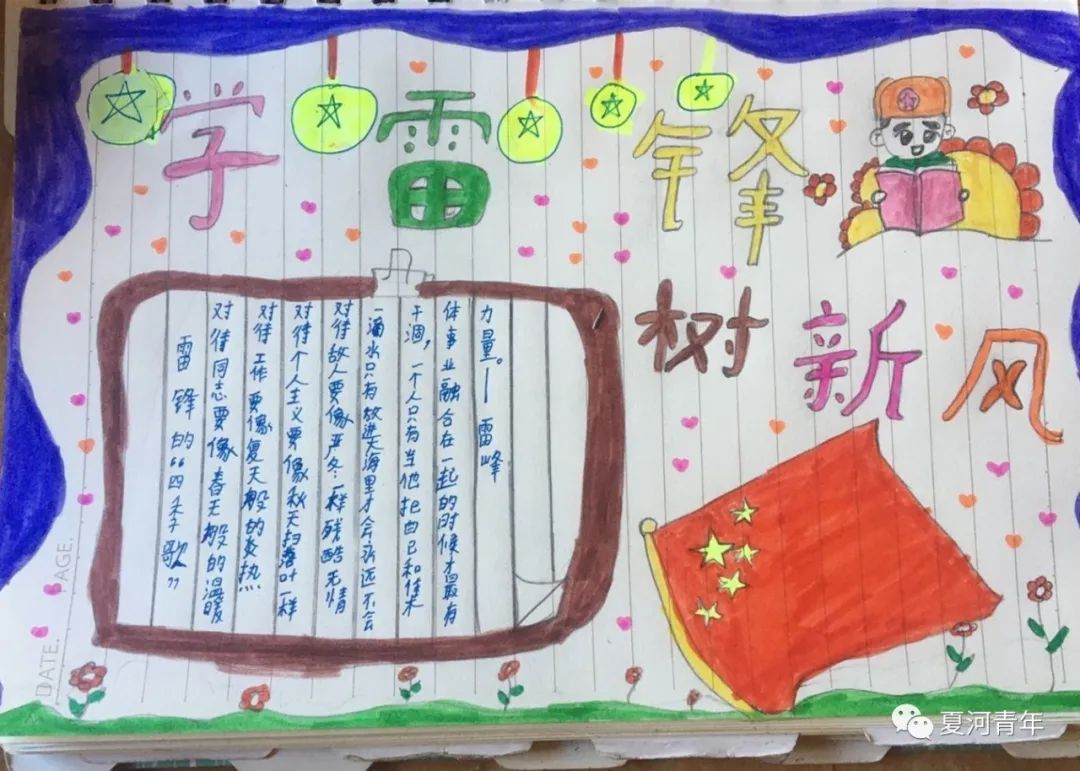 学雷锋
树新风
雷锋的“四季歌”
对待同志要像春天般的温暖
对待工作要像夏天般的炎热
对待个人主义要像秋天扫落叶一样
对待敌人要像严冬一样残酷无情
一滴水只有放进大海里才会永远不会
干涸，一个人只有当他把自己和集
体事业融合在一起的时候才最有
力量。——雷峰
DATE. PAGE.
夏河青年